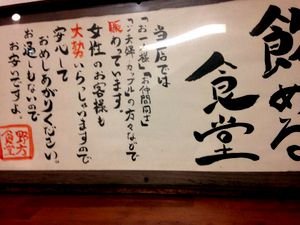 飲める
食堂
当店では
「お一人様」「お仲間同士」
「ご夫婦・カップル」の方々などで
賑わっています。
女性のお客様も
大勢いらっしゃいますので
安心して
おめしあがりください。
お通しないので
お安いですよ。
野方
食堂